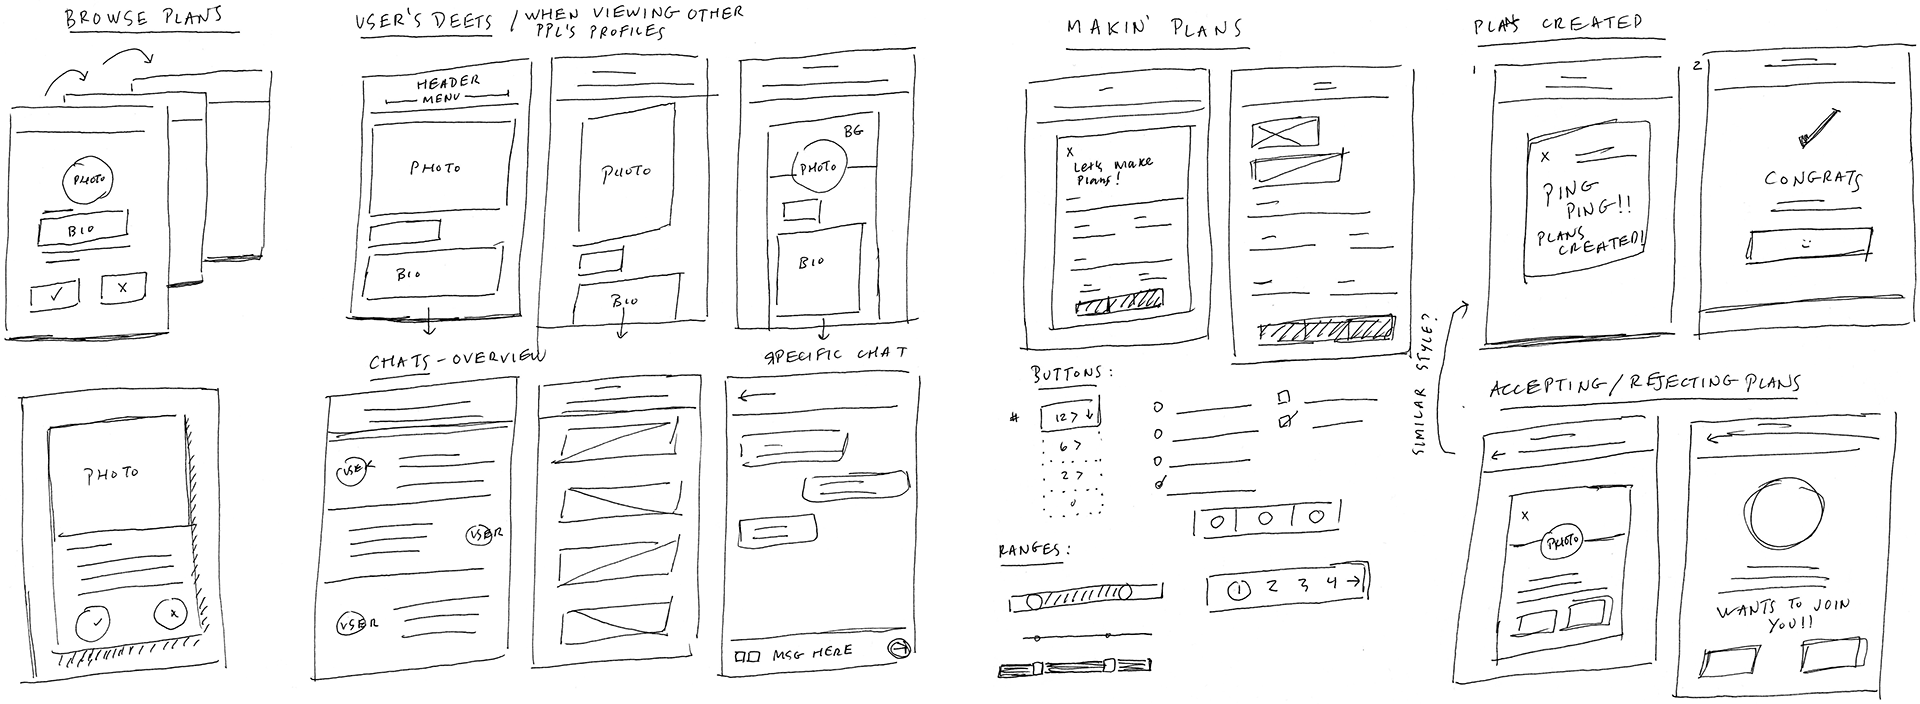 BROWSE PLANS
PHOTO
BIO
✓ X
PHOTO
✓ X
USER'S DEETS / WHEN VIEWING OTHER
PPL'S PROFILES
HEADER
MENU
PHOTO
BIO
PHOTO
BIO
BG
PHOTO
BIO
CHATS - OVERVIEW
USER
USER
USER
SPECIFIC CHAT
MSG HERE
MAKIN' PLANS
X
Let's make
Plans!
BUTTONS:
#
12 >
6 >
2 >
0
RANGES:
1 2 3 4 →
PLANS CREATED
1
X
PING
PING!!
PLANS
CREATED!
2
CONGRATS
SIMILAR STYLE?
ACCEPTING/REJECTING PLANS
X
PHOTO
WANTS TO JOIN
YOU!!